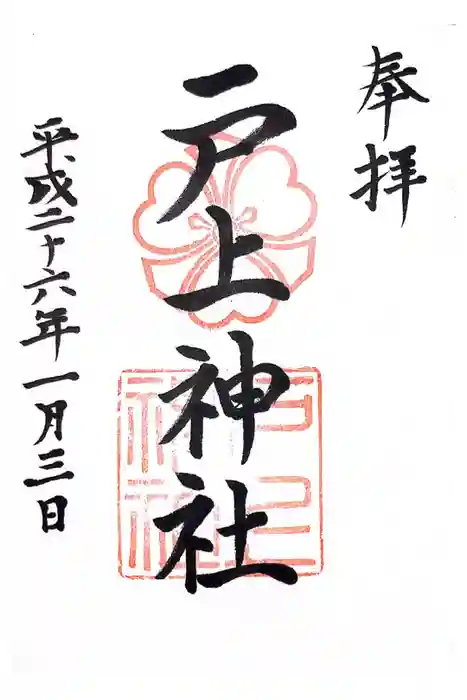 奉拝
戸上神社
平成二十六年一月三日
戸上
神社